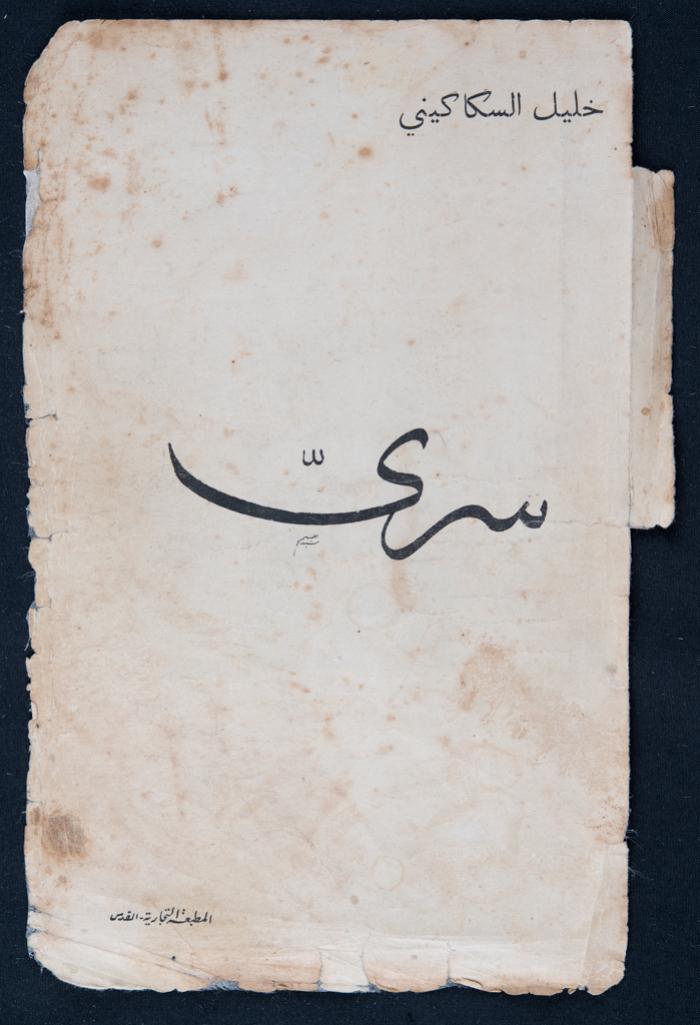 خليل السكاكيني
سريّ
المطبعة التجارية - القدس